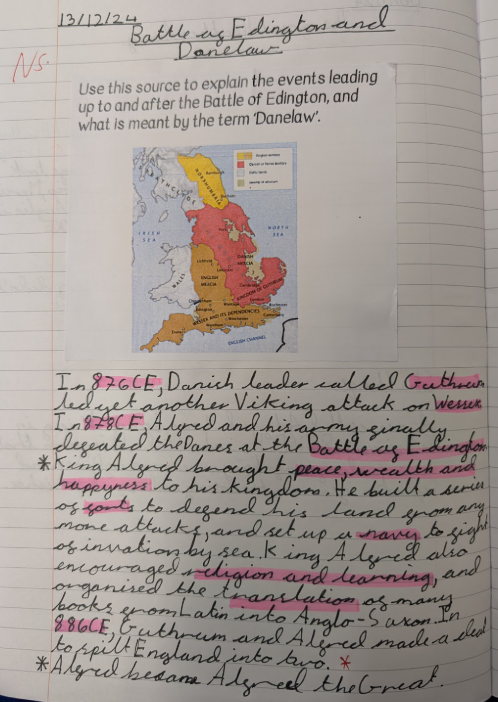 13/12/24
Battle of Edington and
Danelaw
NS.
Use this source to explain the events leading
up to and after the Battle of Edington, and
what is meant by the term 'Danelaw'.
STRATHCLYDE
NORTHUMBRIA
IRISH
SEA
NORTH
SEA
DANISH
MERCIA
ENGLISH
MERCIA
WALES
KINGDOM OF GUTHRUM
WESSEX AND ITS DEPENDENCIES
ENGLISH CHANNEL
In 876CE, Danish leader called Guthrum
led yet another Viking attack on Wessex.
In 878CE Alfred and his army finally
defeated the Danes at the Battle of Edington
*King Alfred brought peace, wealth and
happyness to his kingdom. He built a series
of forts to defend his land from any
more attacks, and set up a navy to fight
of invation by sea. King Alfred also
encouraged religion and learning, and
organised the translation of many
books from Latin into Anglo-Saxon. In
886CE, Guthrum and Alfred made a deal
to spilt England into two. *
*Alfred became Alfred the Great.